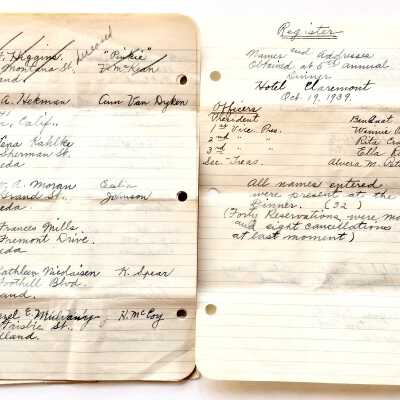 Higgins
Montana St.
deceased
"Pinkie"
McKean
land
A. Hekman
Ann Van Dyken
Calif.
Lena Kahlke
Sherman St.
eda
A. Moran
Jamison
Grand St.
eda
Frances Mills
Fremont Drive.
eda
athleen Nicolaisen
K. Spear
Foothill Blvd.
land.
zel E. Mulvany
H. McCoy
St.,
kland.
Register
Names and Addresses
Obtained at 5th annual
Dinner
Hotel Claremont
Oct. 19, 1939.
Officers
President
1st Vice Pres.
Winnie
2nd " "
Rita Cra
3rd " "
Ella
Sec. Treas.
Alvera M.
All names entered
were present at the
Dinner. (32)
(Forty Reservations were ma
and eight cancellations
at last moment)